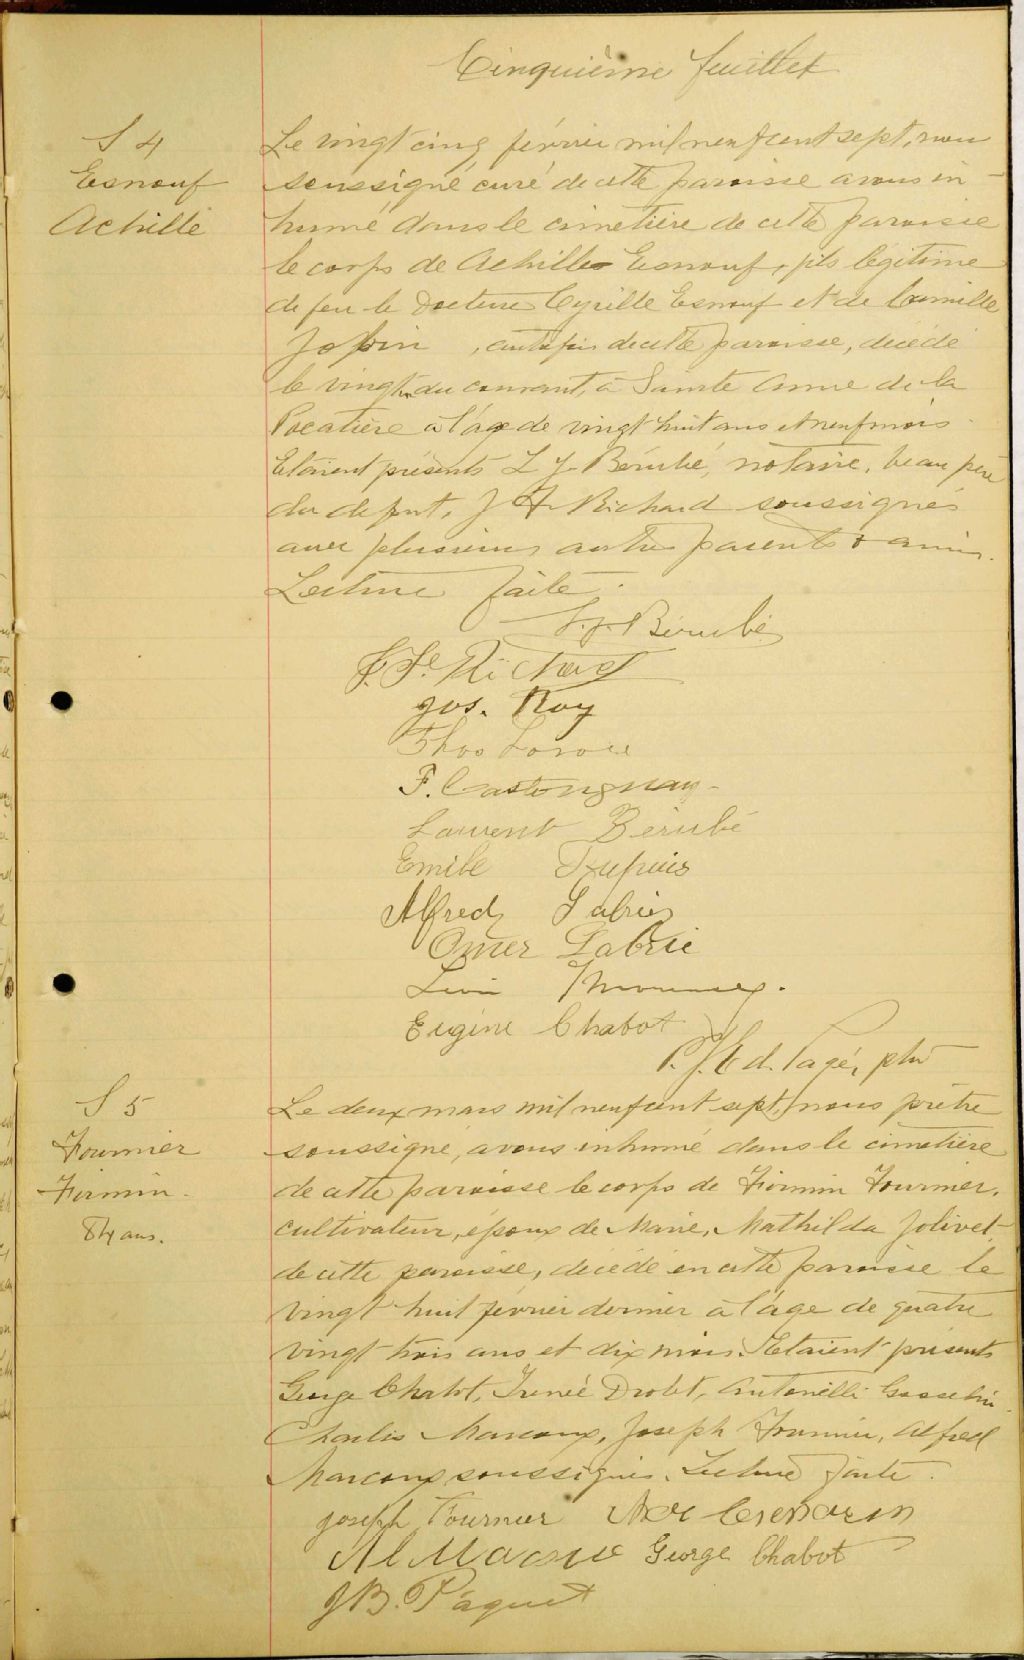 Cinquième feuillet
S 4
Esnouf
Achille
Le vingt cinq février mil neuf cent sept, nous
soussigné curé de cette paroisse avons in-
humé dans le cimetière de cette paroisse
le corps de Achille Esnouf, fils légitime
de feu le Docteur Cyrille Esnouf et de Camille
, autrefois de cette paroisse, décédé
le vingt du courant, à Sainte Anne de la
Pocatière à l'âge de vingt huit ans et neuf mois.
Etaient présents L J Bérubé, notaire, beau père
du defunt, J Richard soussignés
avec plusieurs autres parents & amis.
Lecture faite.
L. J. Bérubé
Richard
Jos. Roy
Thos
F. Castonguay
Laurent Bérubé
Emile Dupuis
Alfred Labrie
Omer Labrie
Eugène Chabot
Pagé, ptre
S 5
Fournier
Firmin.
84 ans.
Le deux mars mil neuf cent sept, nous prêtre
soussigné, avons inhumé dans le cimetière
de cette paroisse le corps de Firmin Fournier,
cultivateur, époux de Marie, Mathilda Jolivet
de cette paroisse, décédé en cette paroisse le
vingt huit février dernier à l'âge de quatre
vingt trois ans et dix mois. Etaient présents
George Chabot, Irénée Drolet, Antonelli Gosselin
Charles Marcoux, Joseph Fournier, Alfred
Marcoux soussignés. Lecture faite.
Joseph Fournier
George Chabot
J B. Paquet